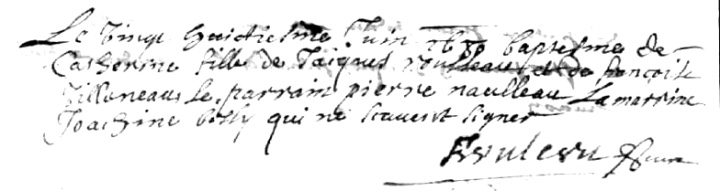 Le Vingt huictiesme Juin 1680 baptesme de
Catherine fille de Jaiques rousleau et de francoise
Villeneau Le parrain pierre naulleau La marrine
Joachine qui ne scavent signer